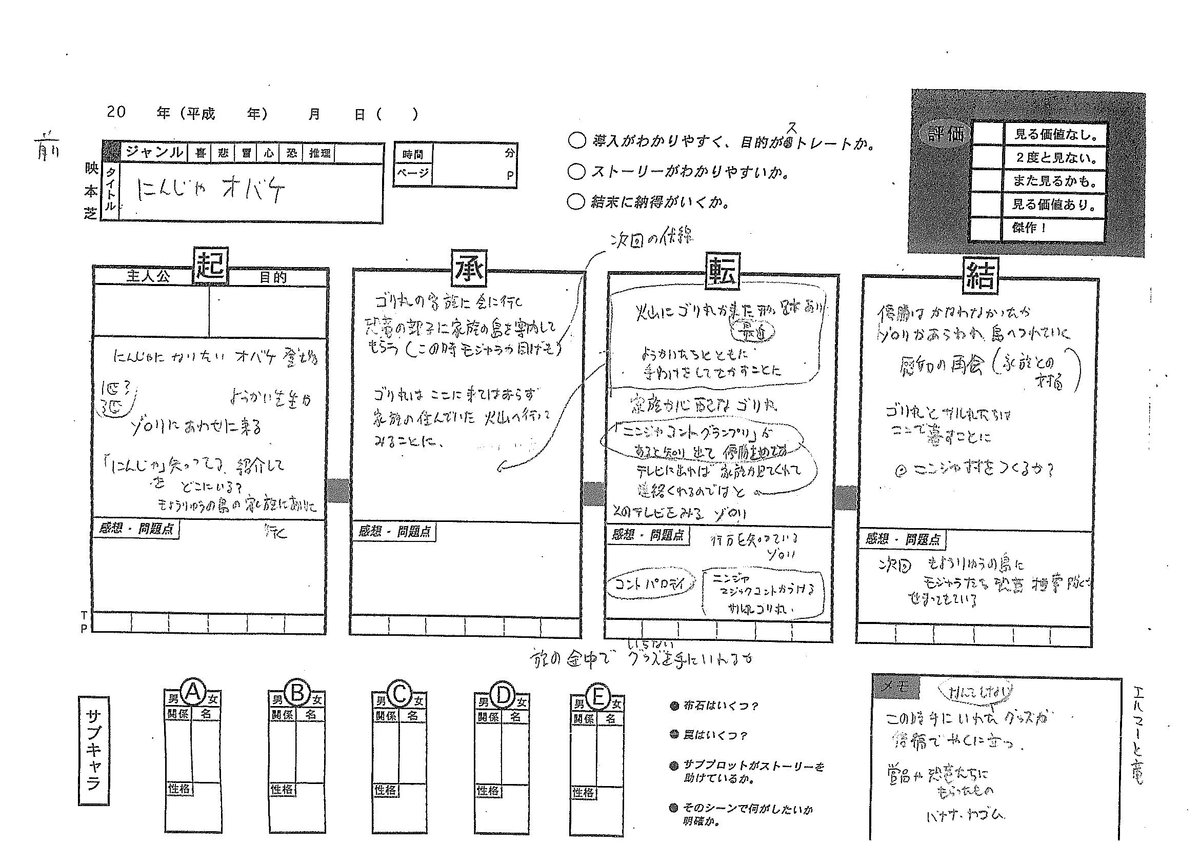 20　　年（平成　　年）　　月　　日（　　）
前
ジャンル 喜 悲 冒 心 恐 推理
映本芝
タイトル
にんじゃ オバケ
時間 分
ページ P
○ 導入がわかりやすく、目的がストレートか。
○ ストーリーがわかりやすいか。
○ 結末に納得がいくか。
評価
見る価値なし。
２度と見ない。
また見るかも。
見る価値あり。
傑作！
次回の伏線
起
主人公 目的
にんじゃに なりたい オバケ 登場
1匹？
3匹
ようかい先生が
ゾロリにあわせに来る
「にんじゃ」知ってる 紹介して
どこにいる？
きょうりゅうの島の家族にあいに
行く
感想・問題点
承
ゴリ丸の家族に会に行く
恐竜の親子に家族の島を案内して
もらう（この時モジャラが
ゴリ丸は ここに まてはおらず
家族の住んでいた 火山へ行って
みることに、
感想・問題点
転
火山にゴリ丸が来た
最近
ようかいたちとともに
手わけをしてさがすことに
家族が心配な ゴリ丸
「ニンジャコントグランプリ」が
あると知り 出て 優勝
テレビに出れば 家族が見てくれて
連絡くれるのではと
そのテレビをみる ゾロリ
感想・問題点
行方を知っている
ゾロリ
コント パロディ
ニンジャ
マジックコントがうける
サル丸ゴリ丸
結
優勝は かなわなかったが
ゾロリがあらわれ、島へつれていく
感動の再会（家族との
対面）
ゴリ丸と サル丸たちは
ここで 暮すことに
◎ ニンジャ村をつくるか？
感想・問題点
次回 きょうりゅうの島に
モジャラたち 恐竜 捜索
せまってきている
TP
旅の途中で いらない グッズを手にいれるか
サブキャラ
男 A 女
関係 名
性格
男 B 女
関係 名
性格
男 C 女
関係 名
性格
男 D 女
関係 名
性格
男 E 女
関係 名
性格
● 布石はいくつ？
● 罠はいくつ？
● サブプロットがストーリーを
助けているか。
● そのシーンで何がしたいか
明確か。
メモ
この時手にいれた グッズが
後編で やくに立つ。
賞品や 恐竜たちに
もらったもの
バナナ・わゴム
エルマーと竜